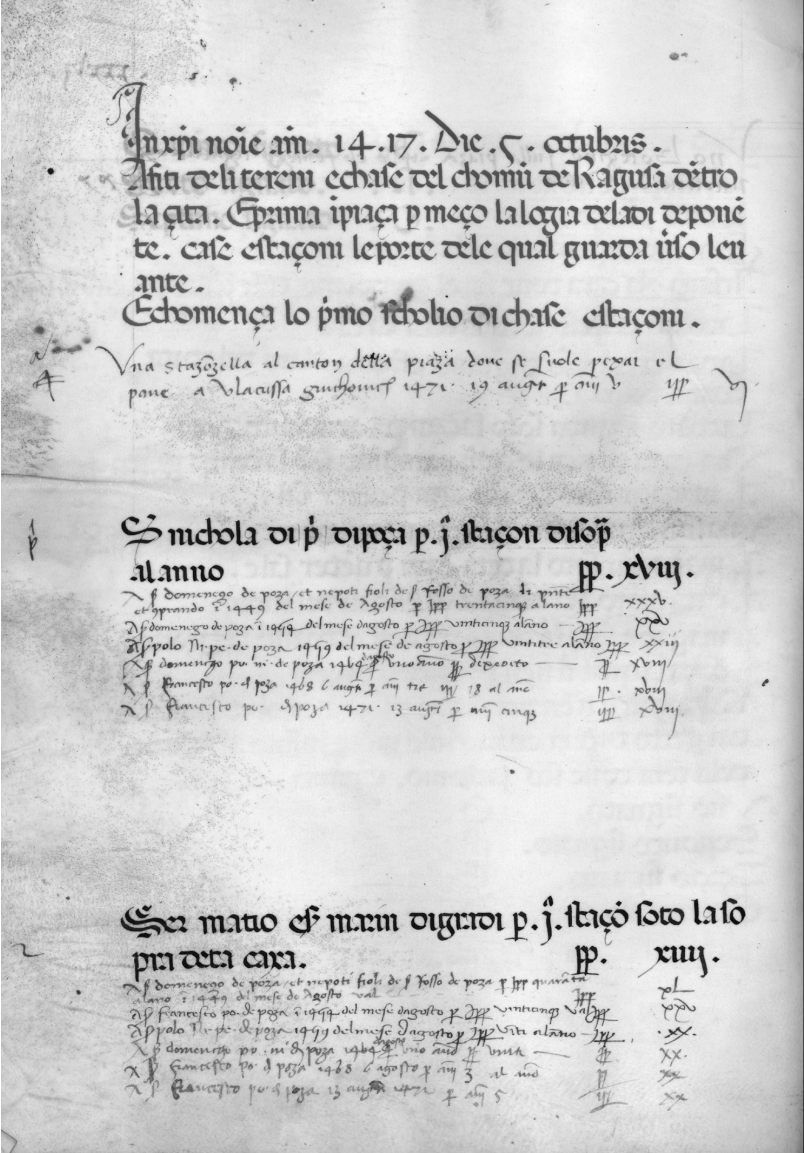 In xp̄i noīe am̄. 14.17. Die .5. octubris.
Afiti deli tereni echase del chomū de Ragusa dētro
la çita. Eprima ī piaça p meço la logia deladi deponē
te. case estaçoni leporte dele qual guarda ūso leu
ante.
Echomença lo p̄mo scholio di chase estaçoni.
Vna stazōzella al canton della piaza doue se suole pexar el
pane. a Vlacussa 1471. 19 aug p anī v ppp vj.
S nichola di p̄ dipoça p .j. staçon disop̄
alanno pp. xviii.
A s domenego de poza et nepoti fioli de s Rosso de poza
ī 1449 del mese de Agosto p ppp trentacinque alano ppp xxxv.
A s domenego de poza ī 1454 del mese dagosto p ppp vinticinque alano ppp xxv
A s polo de poza 1459 del mese de agosto p ppp vintitre alano ppp xxiii
A s domenego po. ni. de poza 1464 dagosto p vno anno ppp dixdoito pp xviii
A s Francesco po. d poza 1468 6 aug p anī tre ppp 18 al ano pp. xviii
A s Francisco po. d poza 1471. 13 aug p anī cinque ppp xviii
Ser matio es marin digradi p .j. staçō soto laso
pra deta caxa. pp. xiiii.
A s domenego de poza et nepoti fioli de s Rosso de poza p ppp quaranta
alano ī 1449 del mese de Agosto val ppp xL
A s francesco po. de poza ī 1454 del mese dagosto p ppp vinticinque val ppp xxv
A s polo de poza 1459 del mese dagosto p ppp vīti alano ppp xx.
A s domenego po. ni. d poza 1464 dagosto p vno ano pp vinti pp xx.
A s Francesco po. d poza 1468 6 agosto p anī 3 al ano pp xx
A s Francesco po. d poza 13 aug 1471 p anī 5 ppp xx